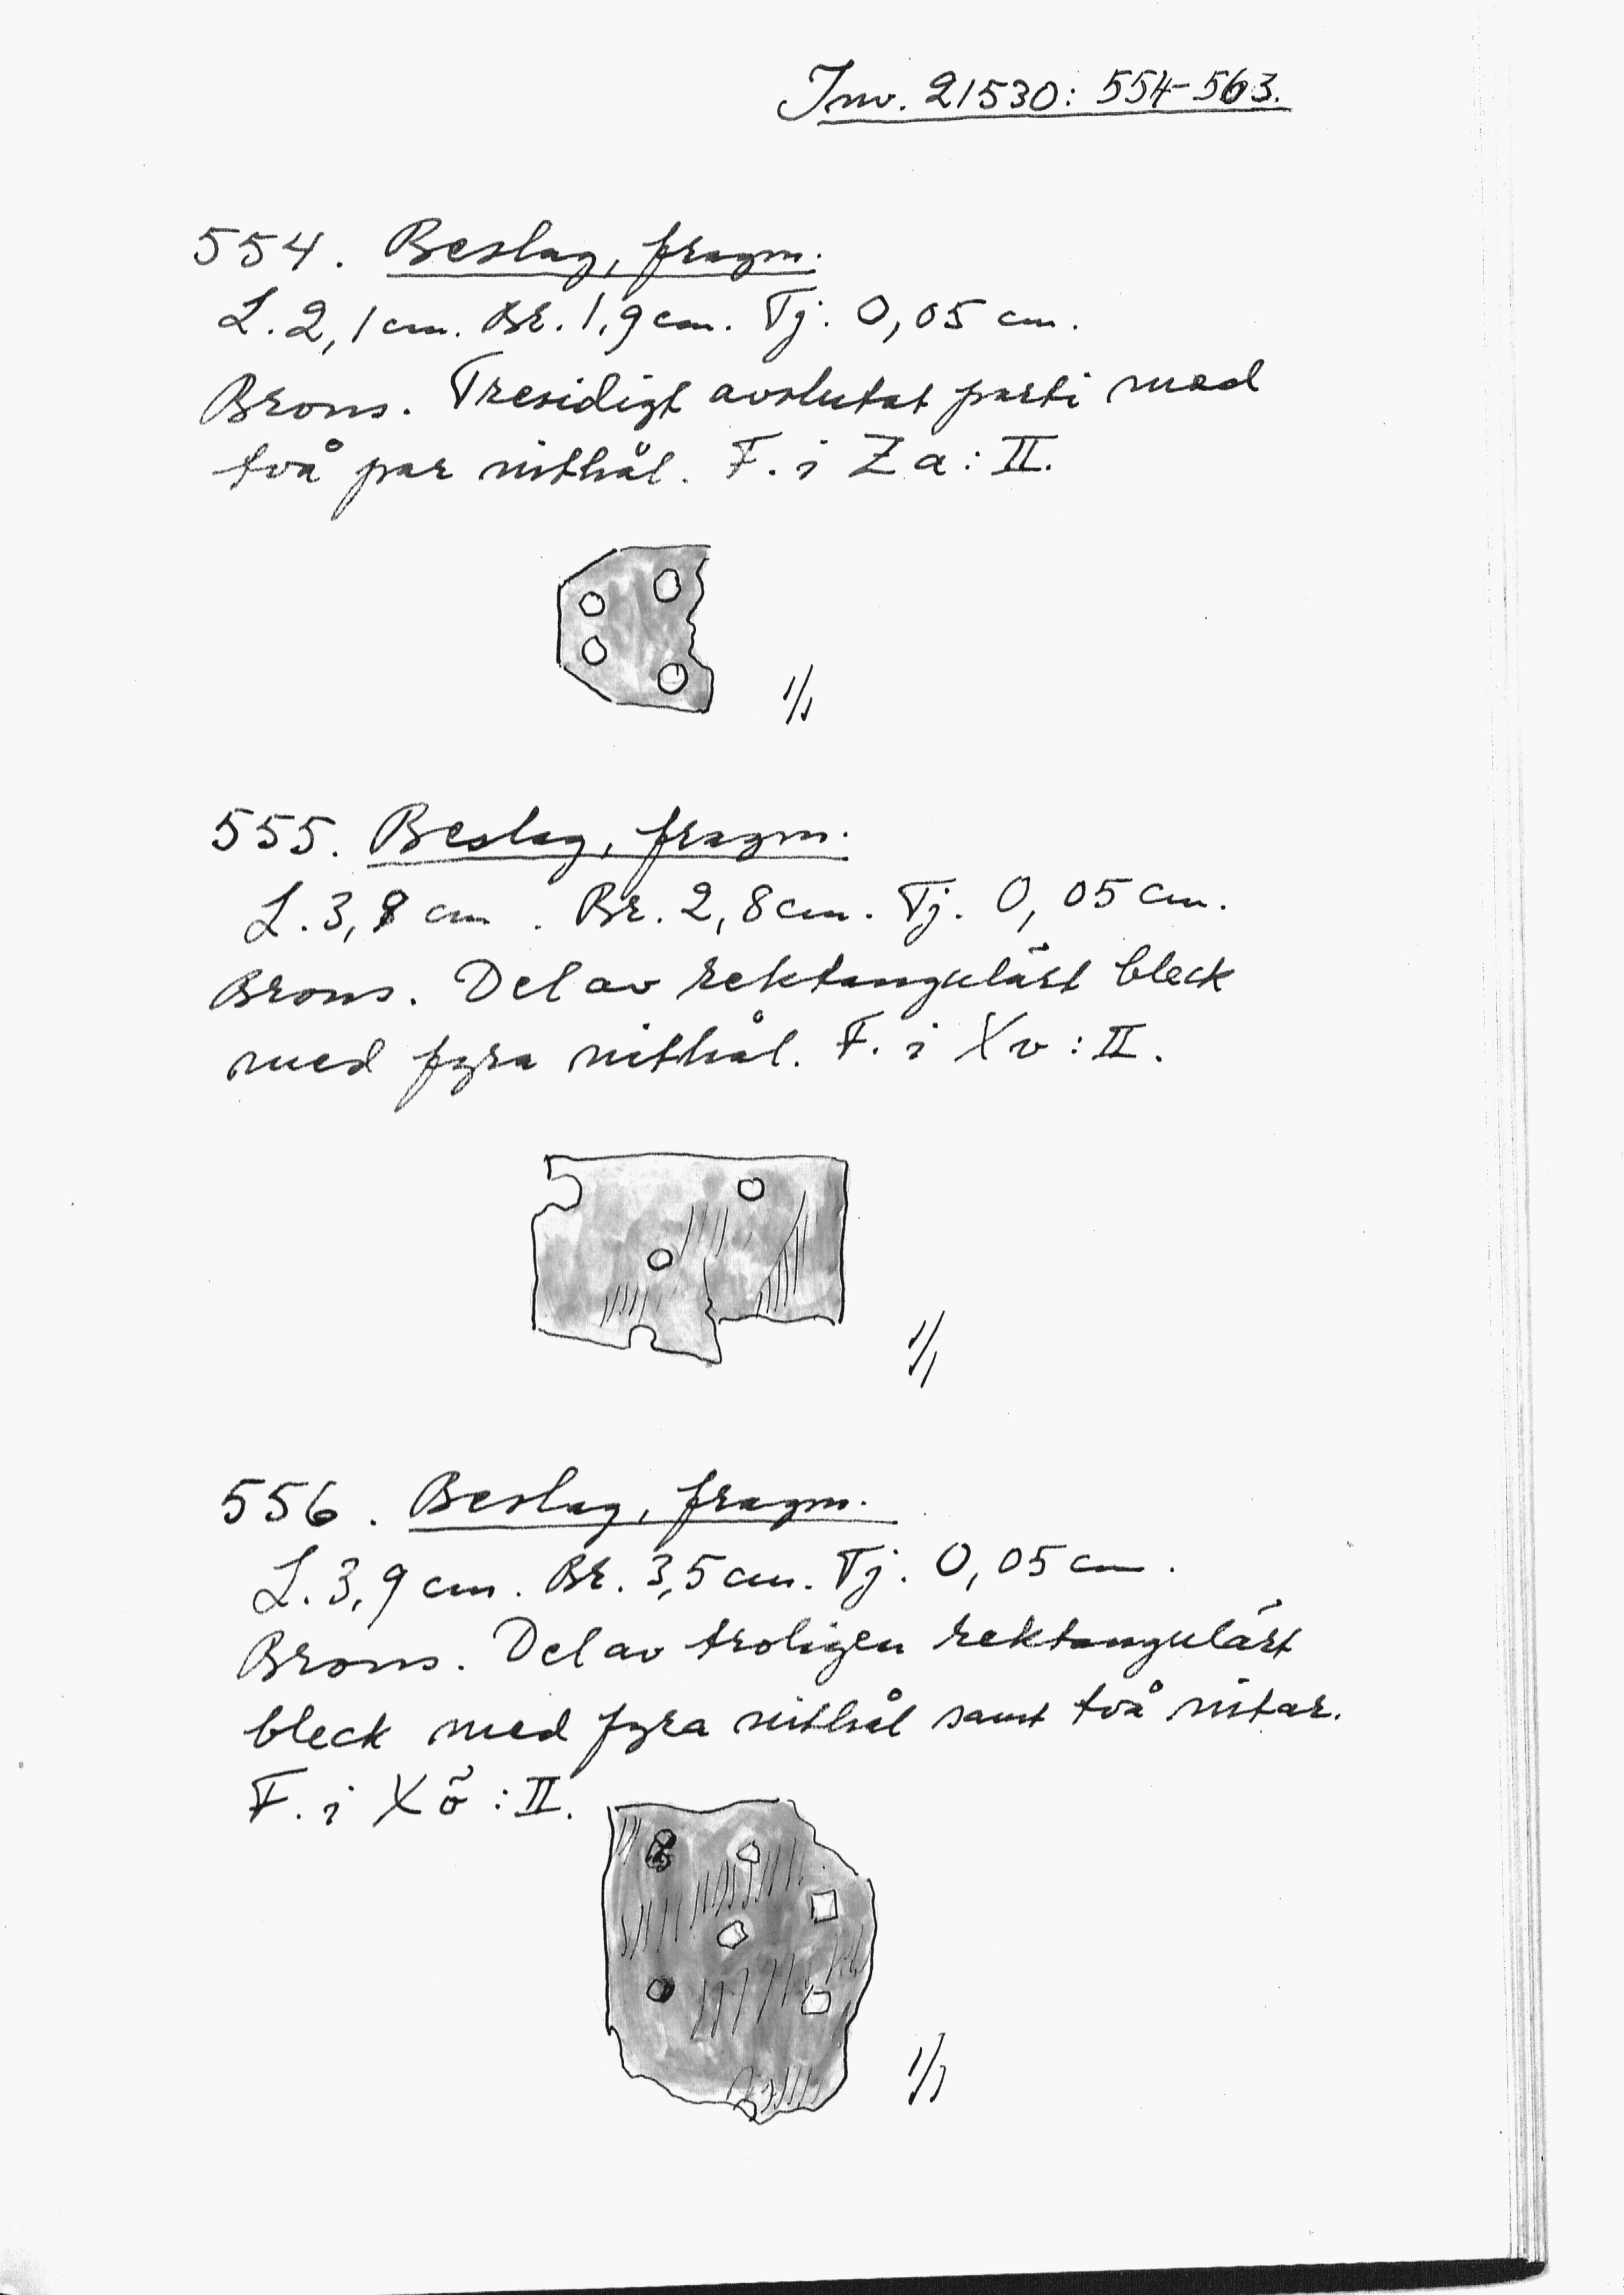 Inv. 21530: 554-563.
554. Beslag, fragm.
L. 2,1 cm. Br. 1,9 cm. Tj. 0,05 cm.
Brons. Tresidigt avslutat parti med
två par nithål. F. i Za: II.
1/1
555. Beslag, fragm.
L. 3,8 cm. Br. 2,8 cm. Tj. 0,05 cm.
Brons. Del av rektangulärt bleck
med fyra nithål. F. i Xv: II.
1/1
556. Beslag, fragm.
L. 3,9 cm. Br. 3,5 cm. Tj. 0,05 cm.
Brons. Del av troligen rektangulärt
bleck med fyra nithål samt två nitar.
F. i Xö: II.
1/1